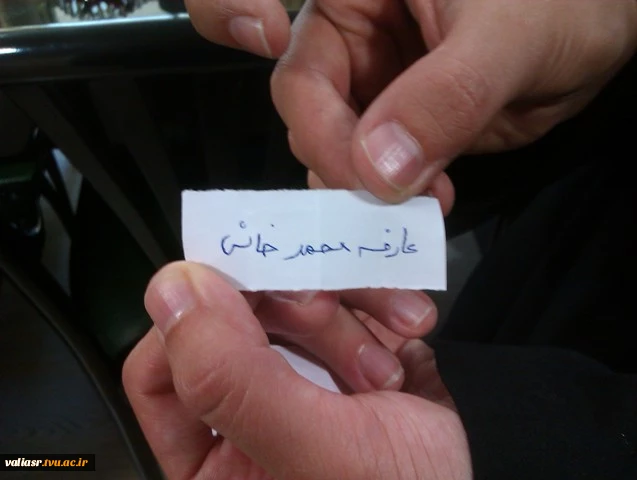 عارفه محمد خانی
valiasr.tvu.ac.ir